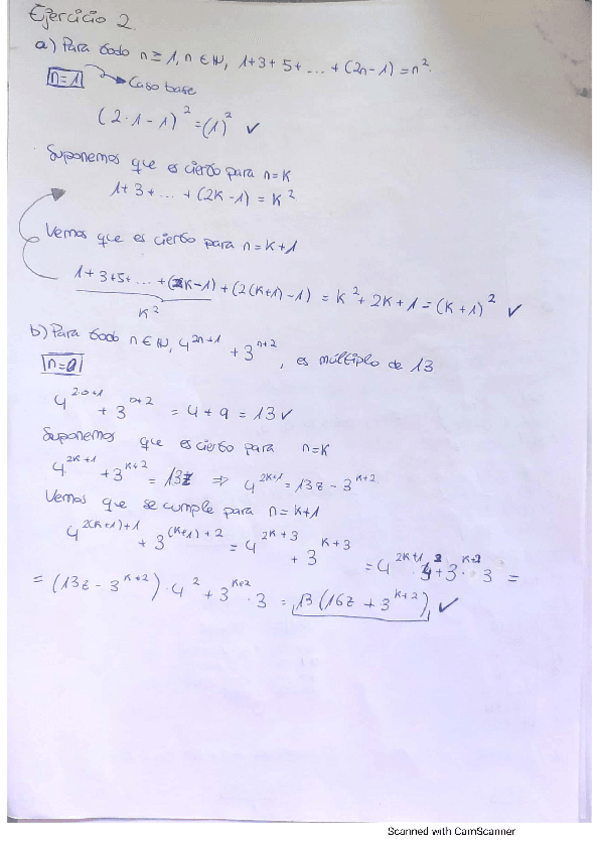 Ejercicio 2
a) Para todo n ≥ 1, n ∈ ℕ, 1+3+5+...+(2n-1) = n².
n=1 → Caso base
(2·1-1)² = (1)² ✓
Suponemos que es cierto para n=K
1+3+...+(2K-1) = K²
Vemos que es cierto para n=K+1
1+3+5+...+(2K-1)+(2(K+1)-1) = K²+2K+1 = (K+1)² ✓
K²
b) Para todo n ∈ ℕ, 4²ⁿ⁺¹ + 3ⁿ⁺², es múltiplo de 13
n=0
4^(2·0+1) + 3^(0+2) = 4+9 = 13 ✓
Suponemos que es cierto para n=K
4^(2K+1) + 3^(K+2) = 13z ⇒ 4^(2K+1) = 13z - 3^(K+2)
Vemos que se cumple para n=K+1
4^(2(K+1)+1) + 3^((K+1)+2) = 4^(2K+3) + 3^(K+3) = 4^(2K+1) · 4² + 3^(K+2) · 3 =
= (13z - 3^(K+2)) · 4² + 3^(K+2) · 3 = 13(16z + 3^(K+2)) ✓
Scanned with CamScanner